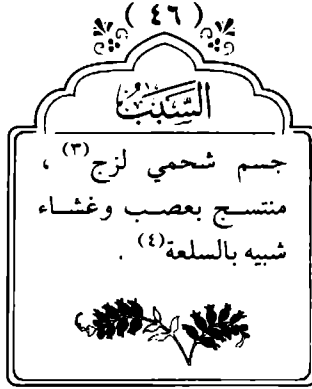 (٤٦)
السَّبَبُ
جسم شحمي لزج(٣) ،
منتسج بعصب وغشاء
شبيه بالسلعة(٤) .